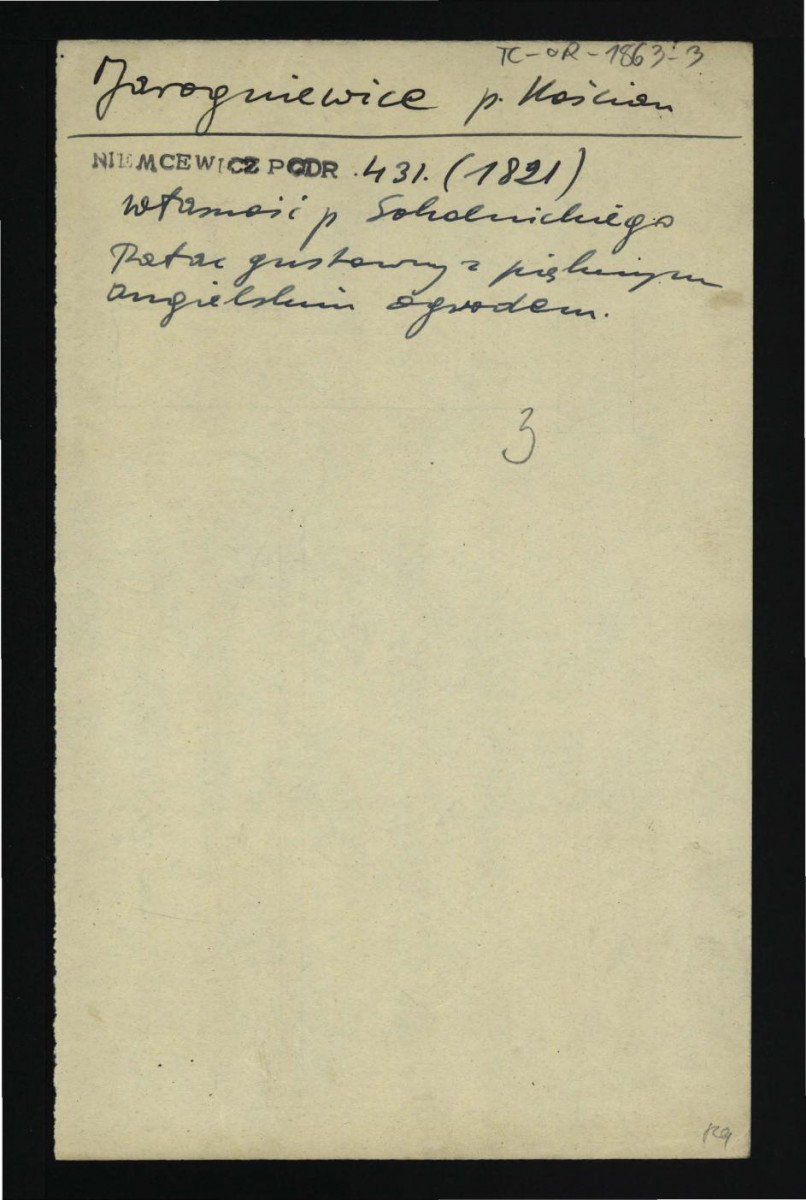 TC-OR-1863-3
Jarogniewice p. Kościan
NIEMCEWICZ PODR. 431. (1821)
własność p Sokolnickiego
Pałac gustowny z pięknym
angielskim ogrodem.
3